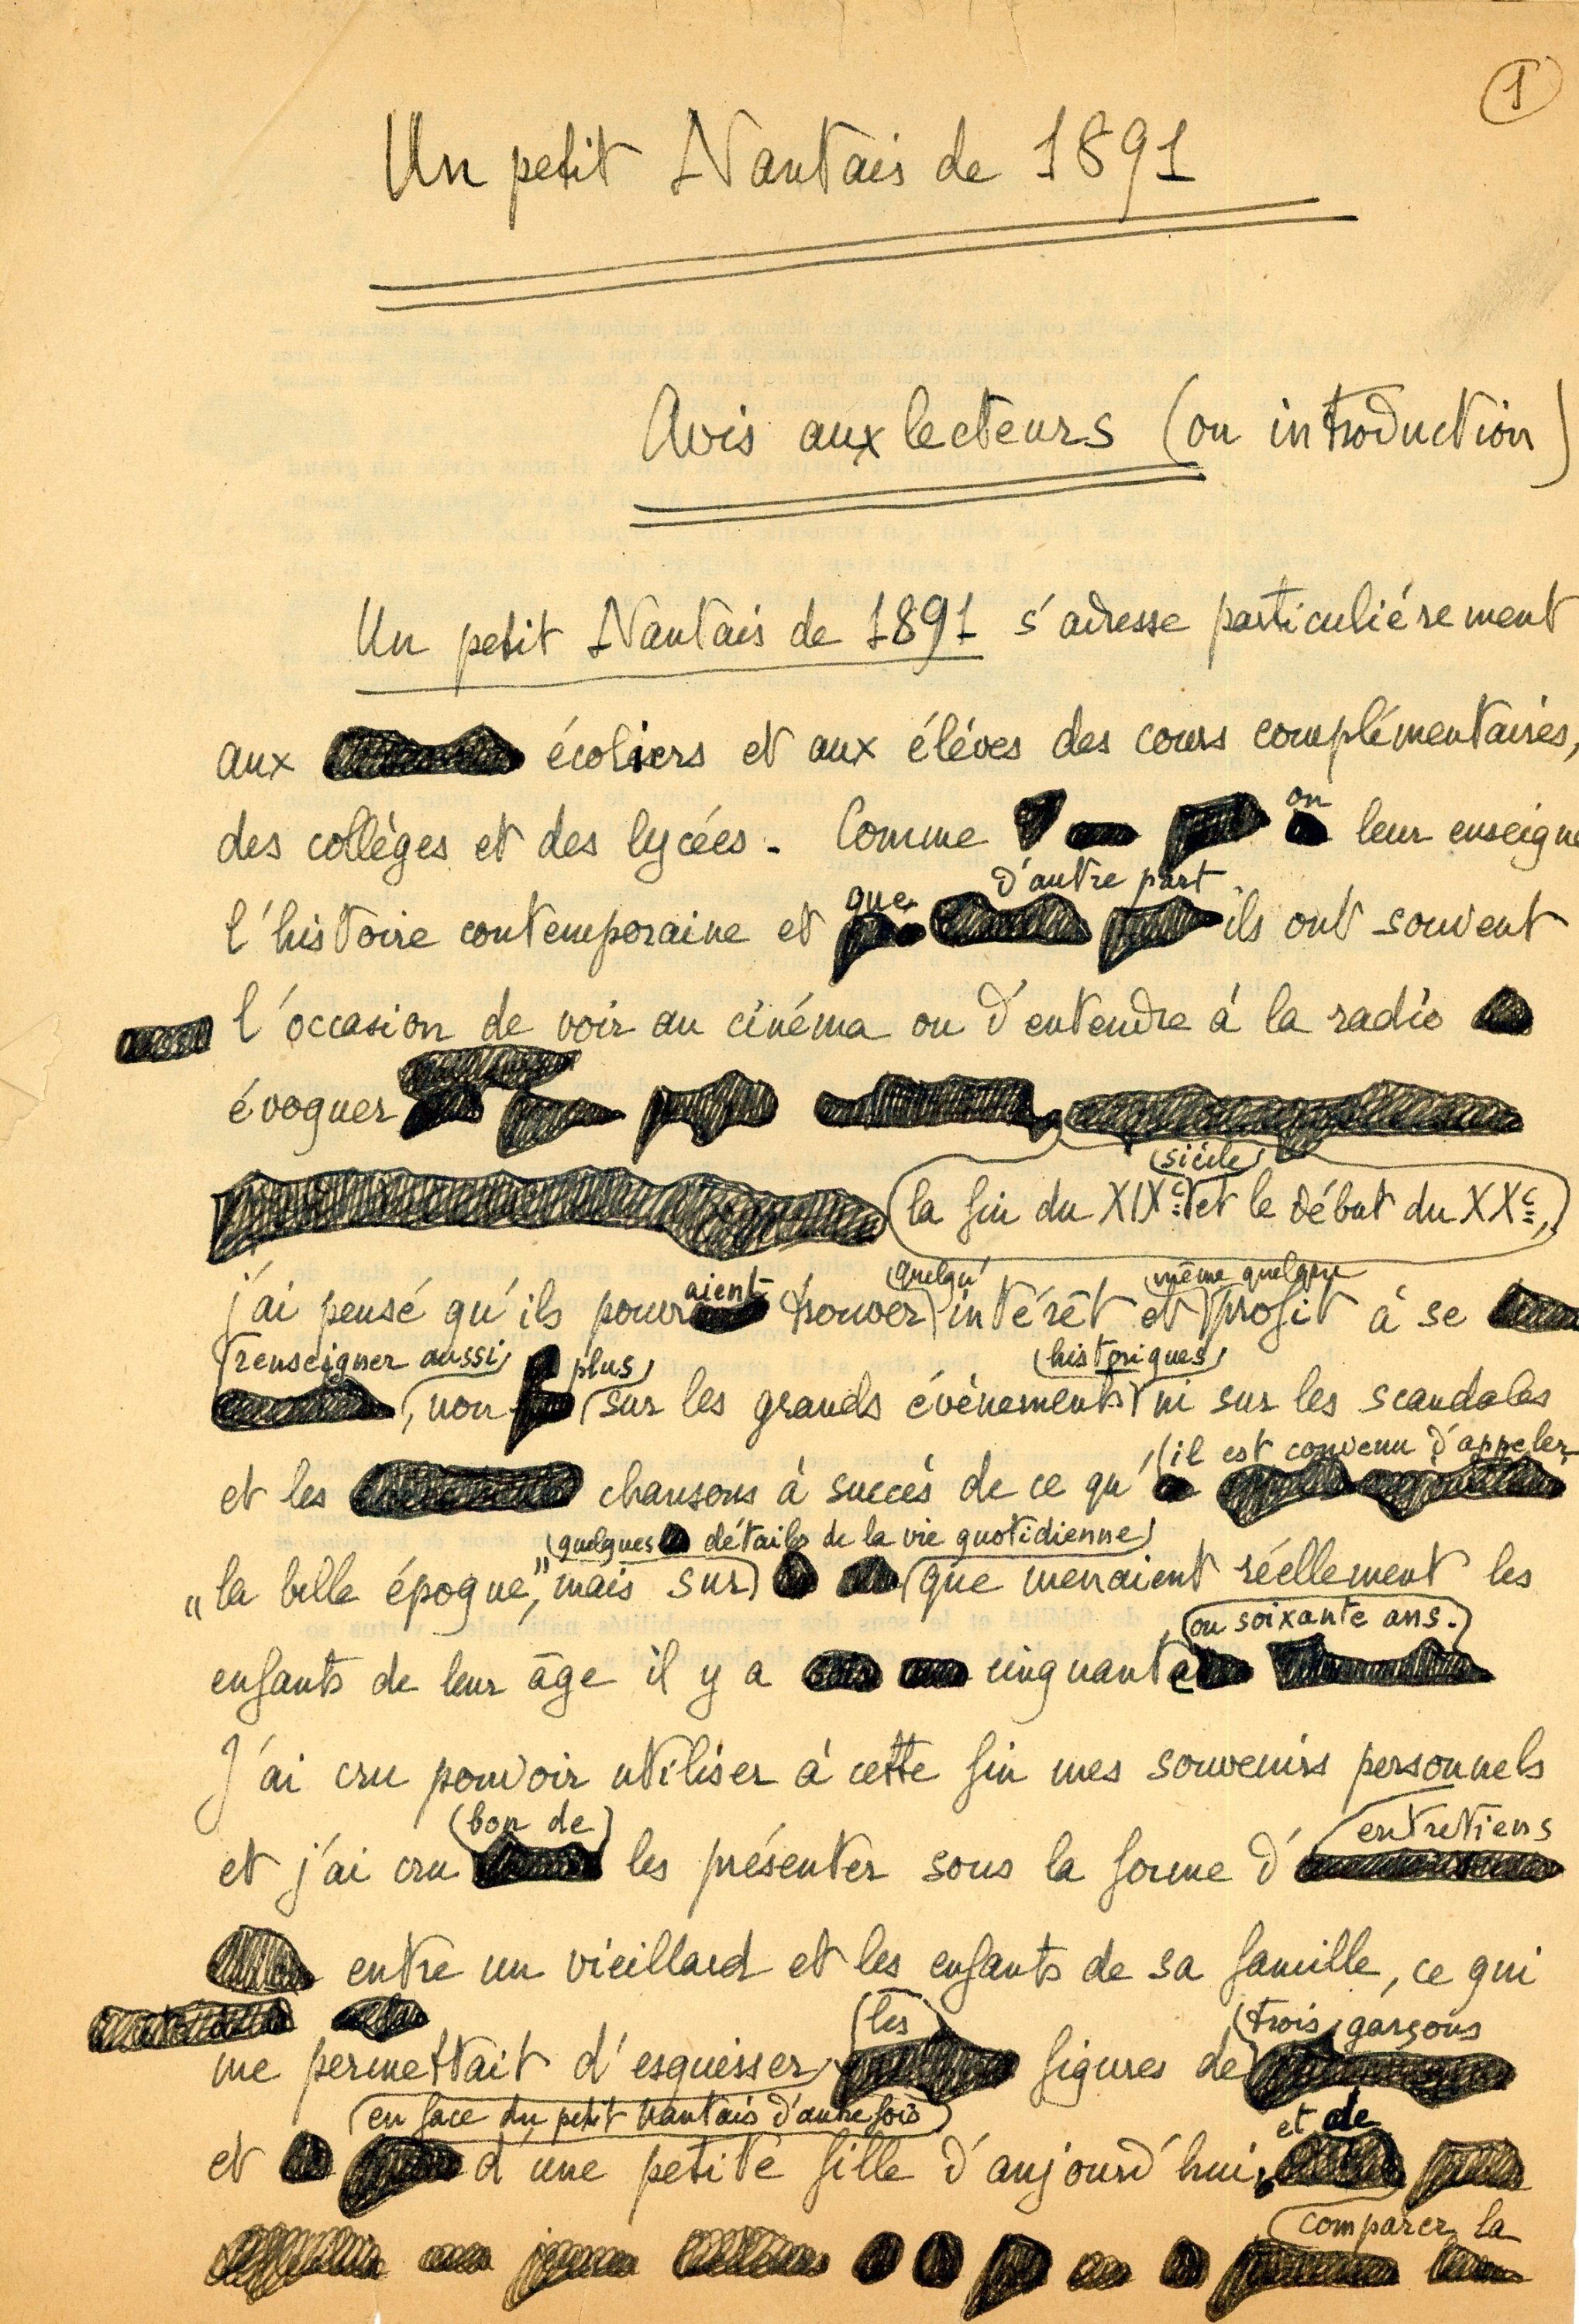 1
Un petit Nantais de 1891
Avis aux lecteurs (ou introduction)
Un petit Nantais de 1891 s'adresse particuliérement
aux écoliers et aux élèves des cours complémentaires,
des collèges et des lycées. Comme on leur enseigne
l'histoire contemporaine et que d'autre part ils ont souvent
l'occasion de voir au cinéma ou d'entendre à la radio
évoquer
la fin du XIXe siècle et le début du XXe,
j'ai pensé qu'ils pourraient trouver quelqu' intérêt et même quelque profit à se
renseigner aussi, non plus sur les grands évènements historiques ni sur les scandales
et les chansons à succès de ce qu'il est convenu d'appeler
"la belle époque", mais sur quelques détails de la vie quotidienne que menaient réellement les
enfants de leur âge il y a cinquante ou soixante ans.
J'ai cru pouvoir utiliser à cette fin mes souvenirs personnels
et j'ai cru bon de les présenter sous la forme d'entretiens
entre un vieillard et les enfants de sa famille, ce qui
me permettait d'esquisser les figures de trois garçons
et d'une petite fille d'aujourd'hui, en face du petit Nantais d'autrefois et de
comparer la